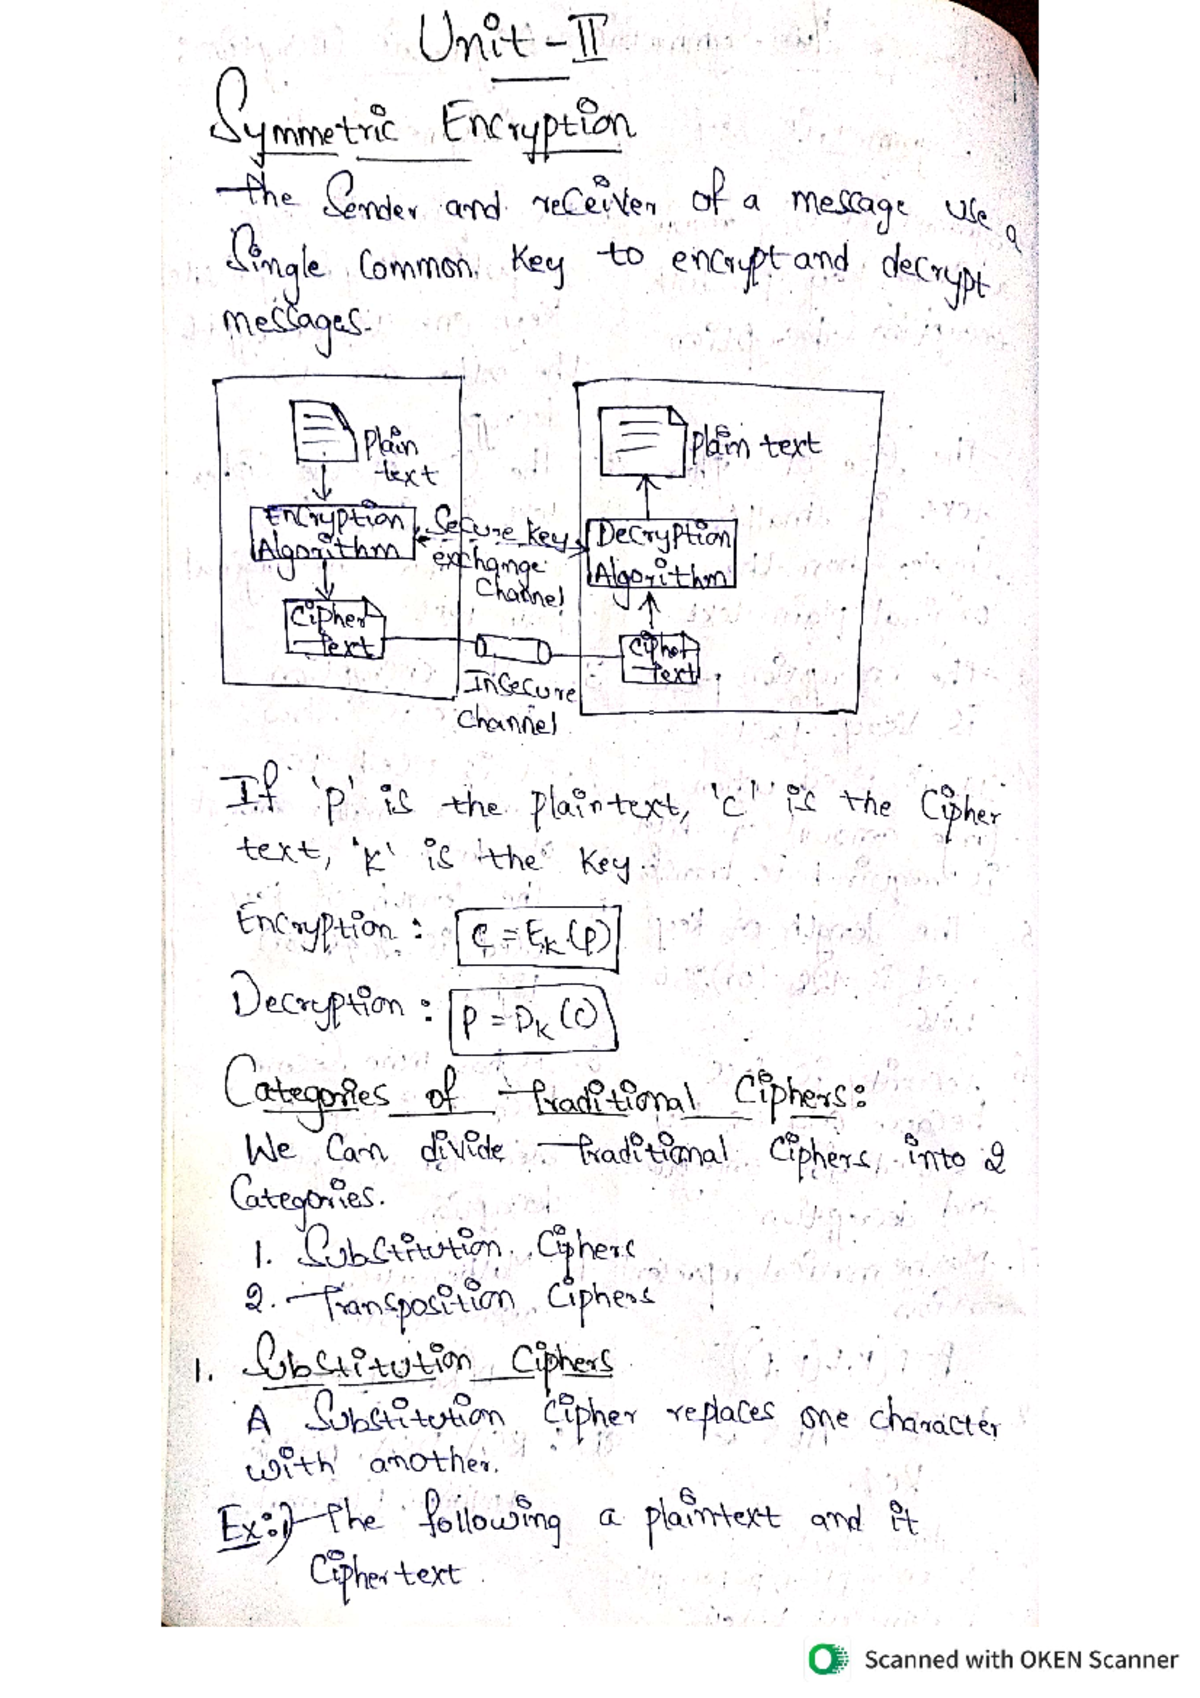 Unit - II
Symmetric Encryption
The Sender and receiver of a message use a
Single Common Key to encrypt and decrypt
messages.
Plain
text
Plain text
Encryption
Algorithm
Secure Key
exchange
Channel
Decryption
Algorithm
Cipher
Text
Cipher
Text
InSecure
Channel
If 'p' is the plaintext, 'c' is the Cipher
text, 'K' is the Key.
Encryption : C = EK(P)
Decryption : P = DK(C)
Categories of Traditional Ciphers:
We Can divide Traditional Ciphers into 2
Categories.
1. Substitution Ciphers
2. Transposition Ciphers
1. Substitution Ciphers
A Substitution Cipher replaces one character
with another.
Ex:1) The following a plaintext and it
Ciphertext.
Scanned with OKEN Scanner